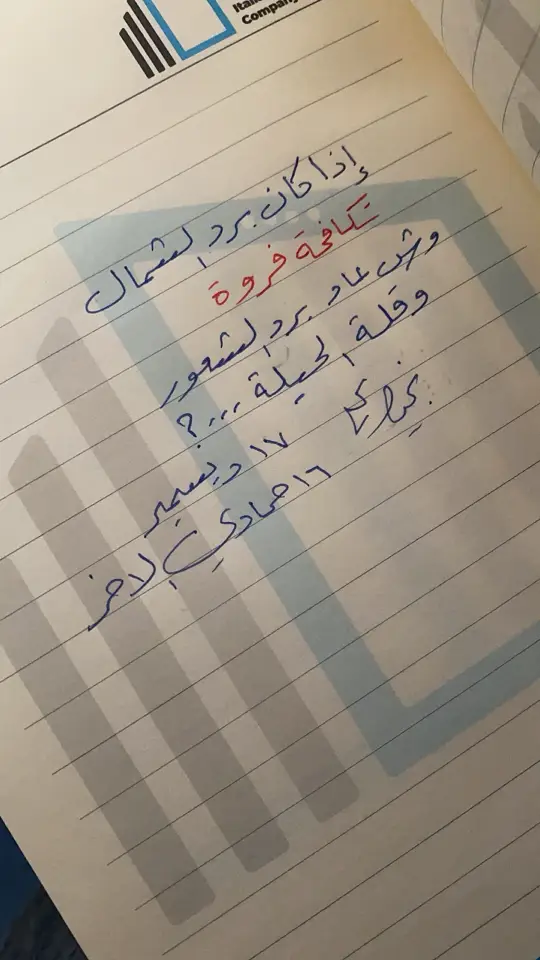 Itali
Company
إذا كان برد الشمال
تكافحة فروة
وش عاد برد الشعور
وقلة الحيلة ...؟
١٧ ديسمبر
١٦ جمادى الاخر